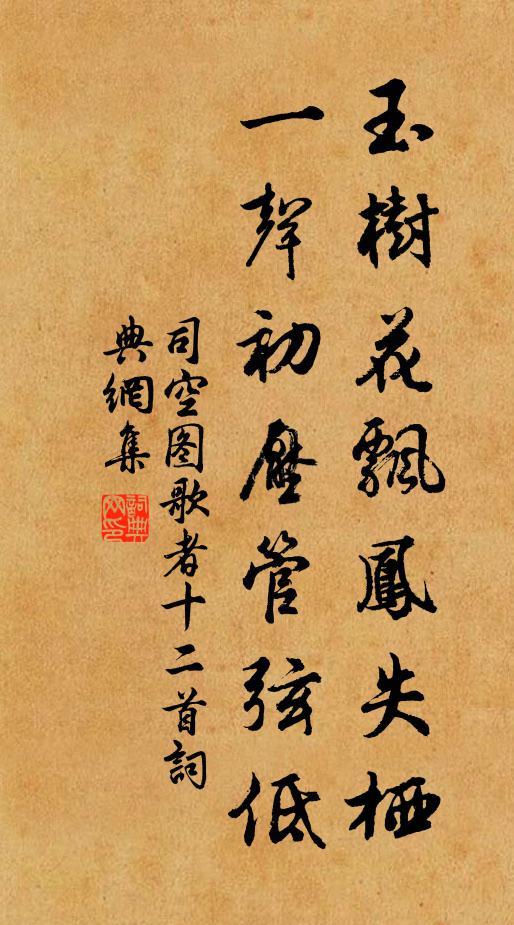 玉樹花飄鳳失栖
一聲初壓管弦低
司空图歌者十二首詞
典網集
詞典网印